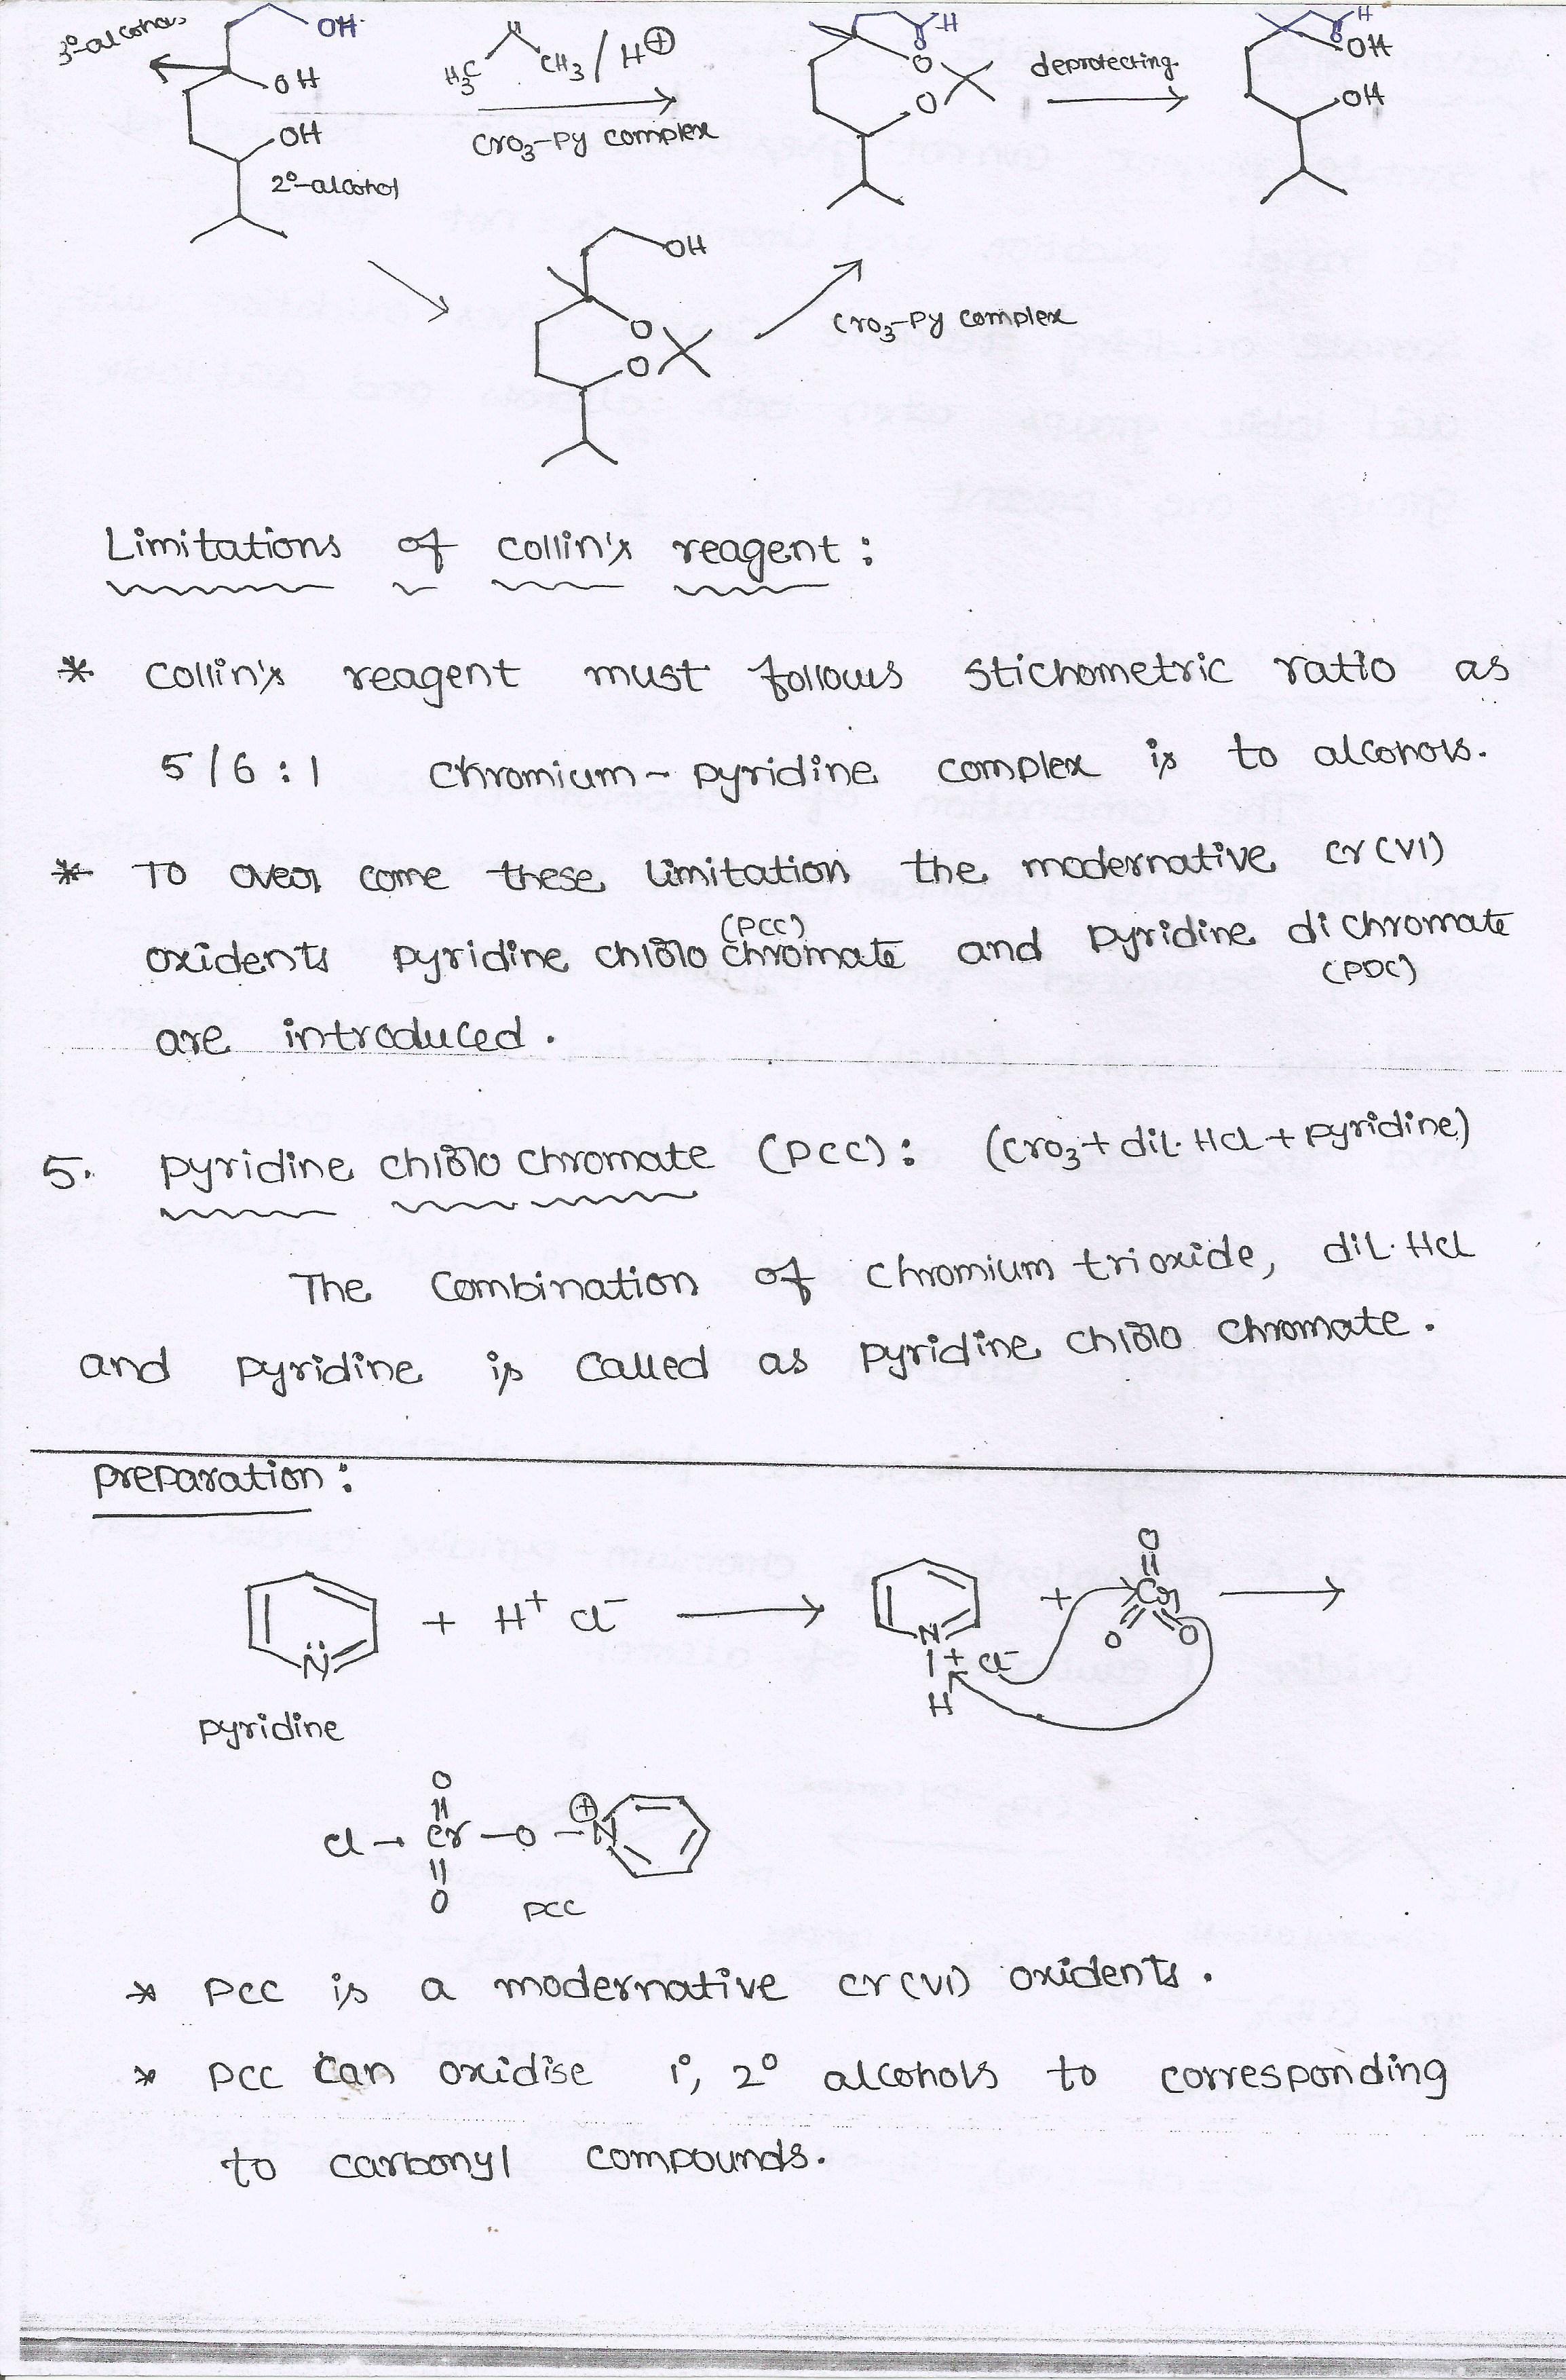 3°-alcohols
OH
OH
OH
2°-alcohol
H₃C CH₃ / H⊕
CrO₃-Py complex
H
O
O
deprotecting
H
OH
OH
OH
O
O
CrO₃-Py complex
Limitations of collin's reagent :
* collin's reagent must follows stichometric ratio as
5/6 : 1 chromium - pyridine complex is to alcohols.
* To over come these limitation the modernative cr(VI)
oxidents pyridine chloro chromate (PCC) and pyridine dichromate
(PDC)
are introduced.
5. pyridine chloro chromate (PCC) : (CrO₃ + dil. HCl + pyridine)
The combination of chromium trioxide, dil. HCl
and pyridine is called as pyridine chloro chromate.
preparation :
N̈ + H⁺ Cl⁻ ⟶ N + H Cl⁻ + Cr O O O ⟶
pyridine
O
Cl - Cr - O - N ⊕
O
PCC
* PCC is a modernative cr(VI) oxidents.
* PCC can oxidise 1°, 2° alcohols to corresponding
to carbonyl compounds.